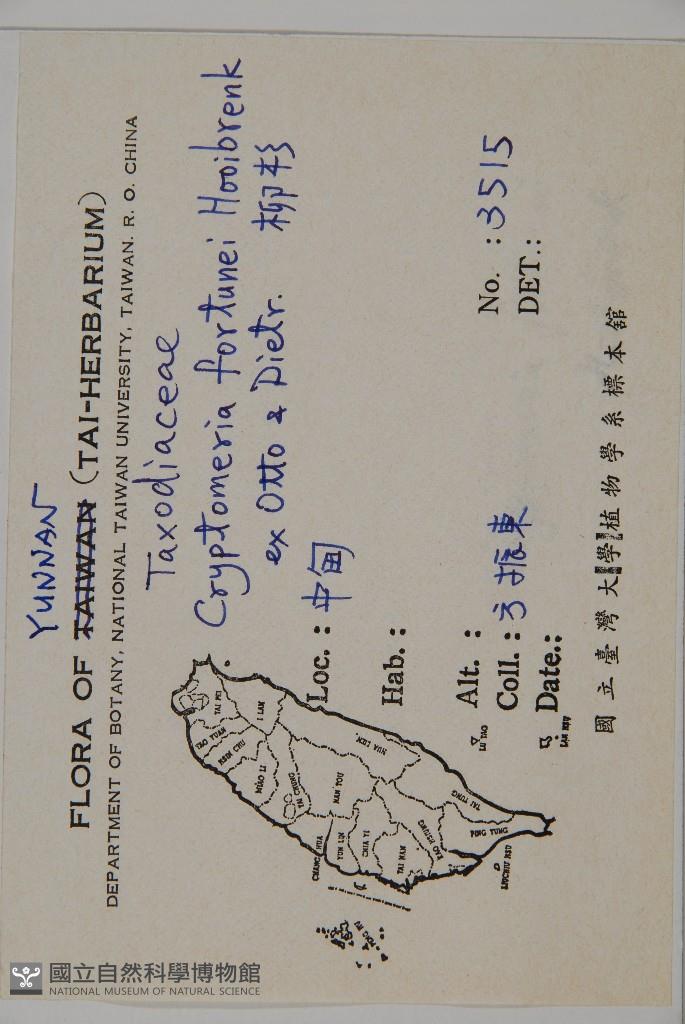 YUNNAN
FLORA OF TAIWAN (TAI-HERBARIUM)
DEPARTMENT OF BOTANY, NATIONAL TAIWAN UNIVERSITY, TAIWAN. R. O. CHINA
Taxodiaceae
Cryptomeria fortunei Hooibrenk
ex Otto & Dietr. 柳杉
Loc.: 中甸
Hab.:
Alt.:
No.: 3515
Coll.: 方振東
DET.:
Date.:
國立臺灣大學植物學系標本館
TAI PEI
I LAN
TAO YUAN
HSIN CHU
MIAO LI
TAI CHUNG
HUA LIEN
NAN TOU
CHANG HUA
YUN LIN
CHIA YI
TAI NAN
KAO HSIUNG
TAI TUNG
PING TUNG
LIUCHIU HSU
LU TAO
LAN HSU
PENG HU
國立自然科學博物館
NATIONAL MUSEUM OF NATURAL SCIENCE